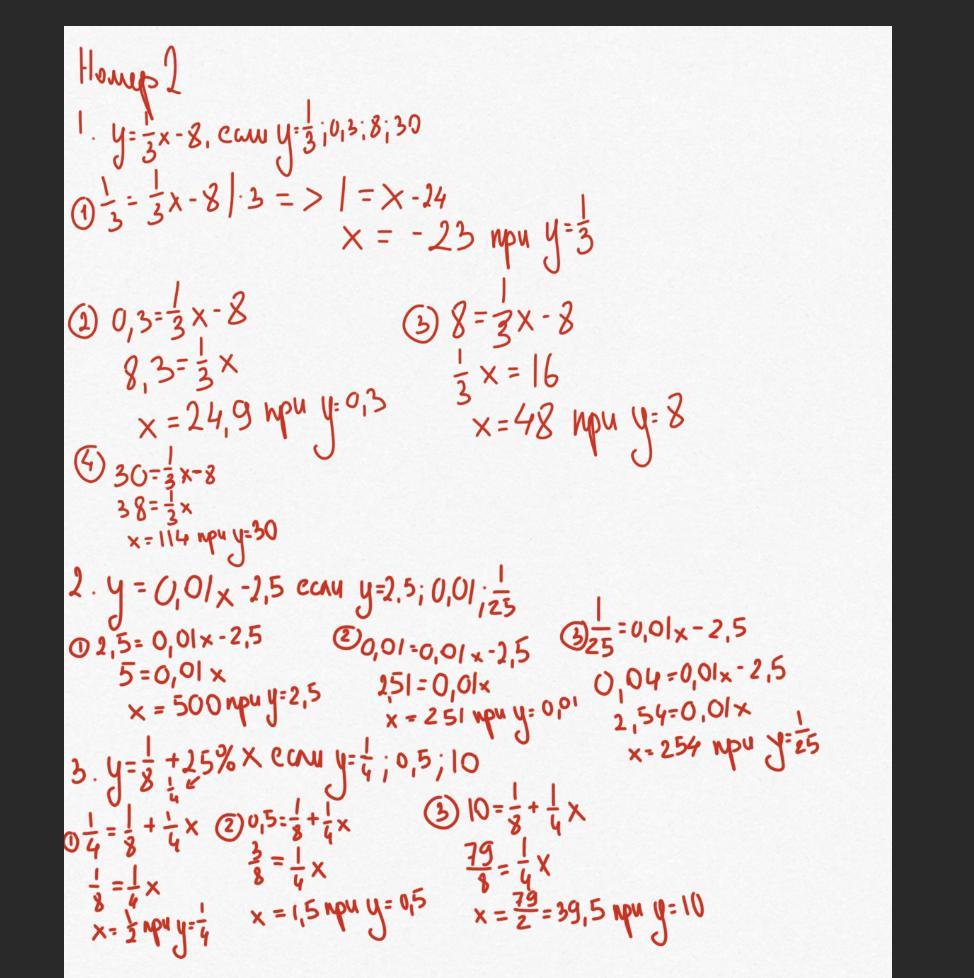 Номер 2
1. y=1/3x-8, если y=1/3; 0,3; 8; 30
① 1/3 = 1/3x - 8 |·3 => 1 = x - 24
x = -23 при y=1/3
② 0,3=1/3x-8
8,3=1/3x
x=24,9 при y=0,3
③ 8=1/3x-8
1/3x=16
x=48 при y=8
④ 30=1/3x-8
38=1/3x
x=114 при y=30
2. y=0,01x-2,5 если y=2,5; 0,01; 1/25
① 2,5=0,01x-2,5
5=0,01x
x=500 при y=2,5
② 0,01=0,01x-2,5
2,51=0,01x
x=251 при y=0,01
③ 1/25=0,01x-2,5
0,04=0,01x-2,5
2,54=0,01x
x=254 при y=1/25
3. y=1/8+25%x если y=1/4; 0,5; 10
1/4
① 1/4=1/8+1/4x
1/8=1/4x
x=1/2 при y=1/4
② 0,5=1/8+1/4x
3/8=1/4x
x=1,5 при y=0,5
③ 10=1/8+1/4x
79/8=1/4x
x=79/2=39,5 при y=10